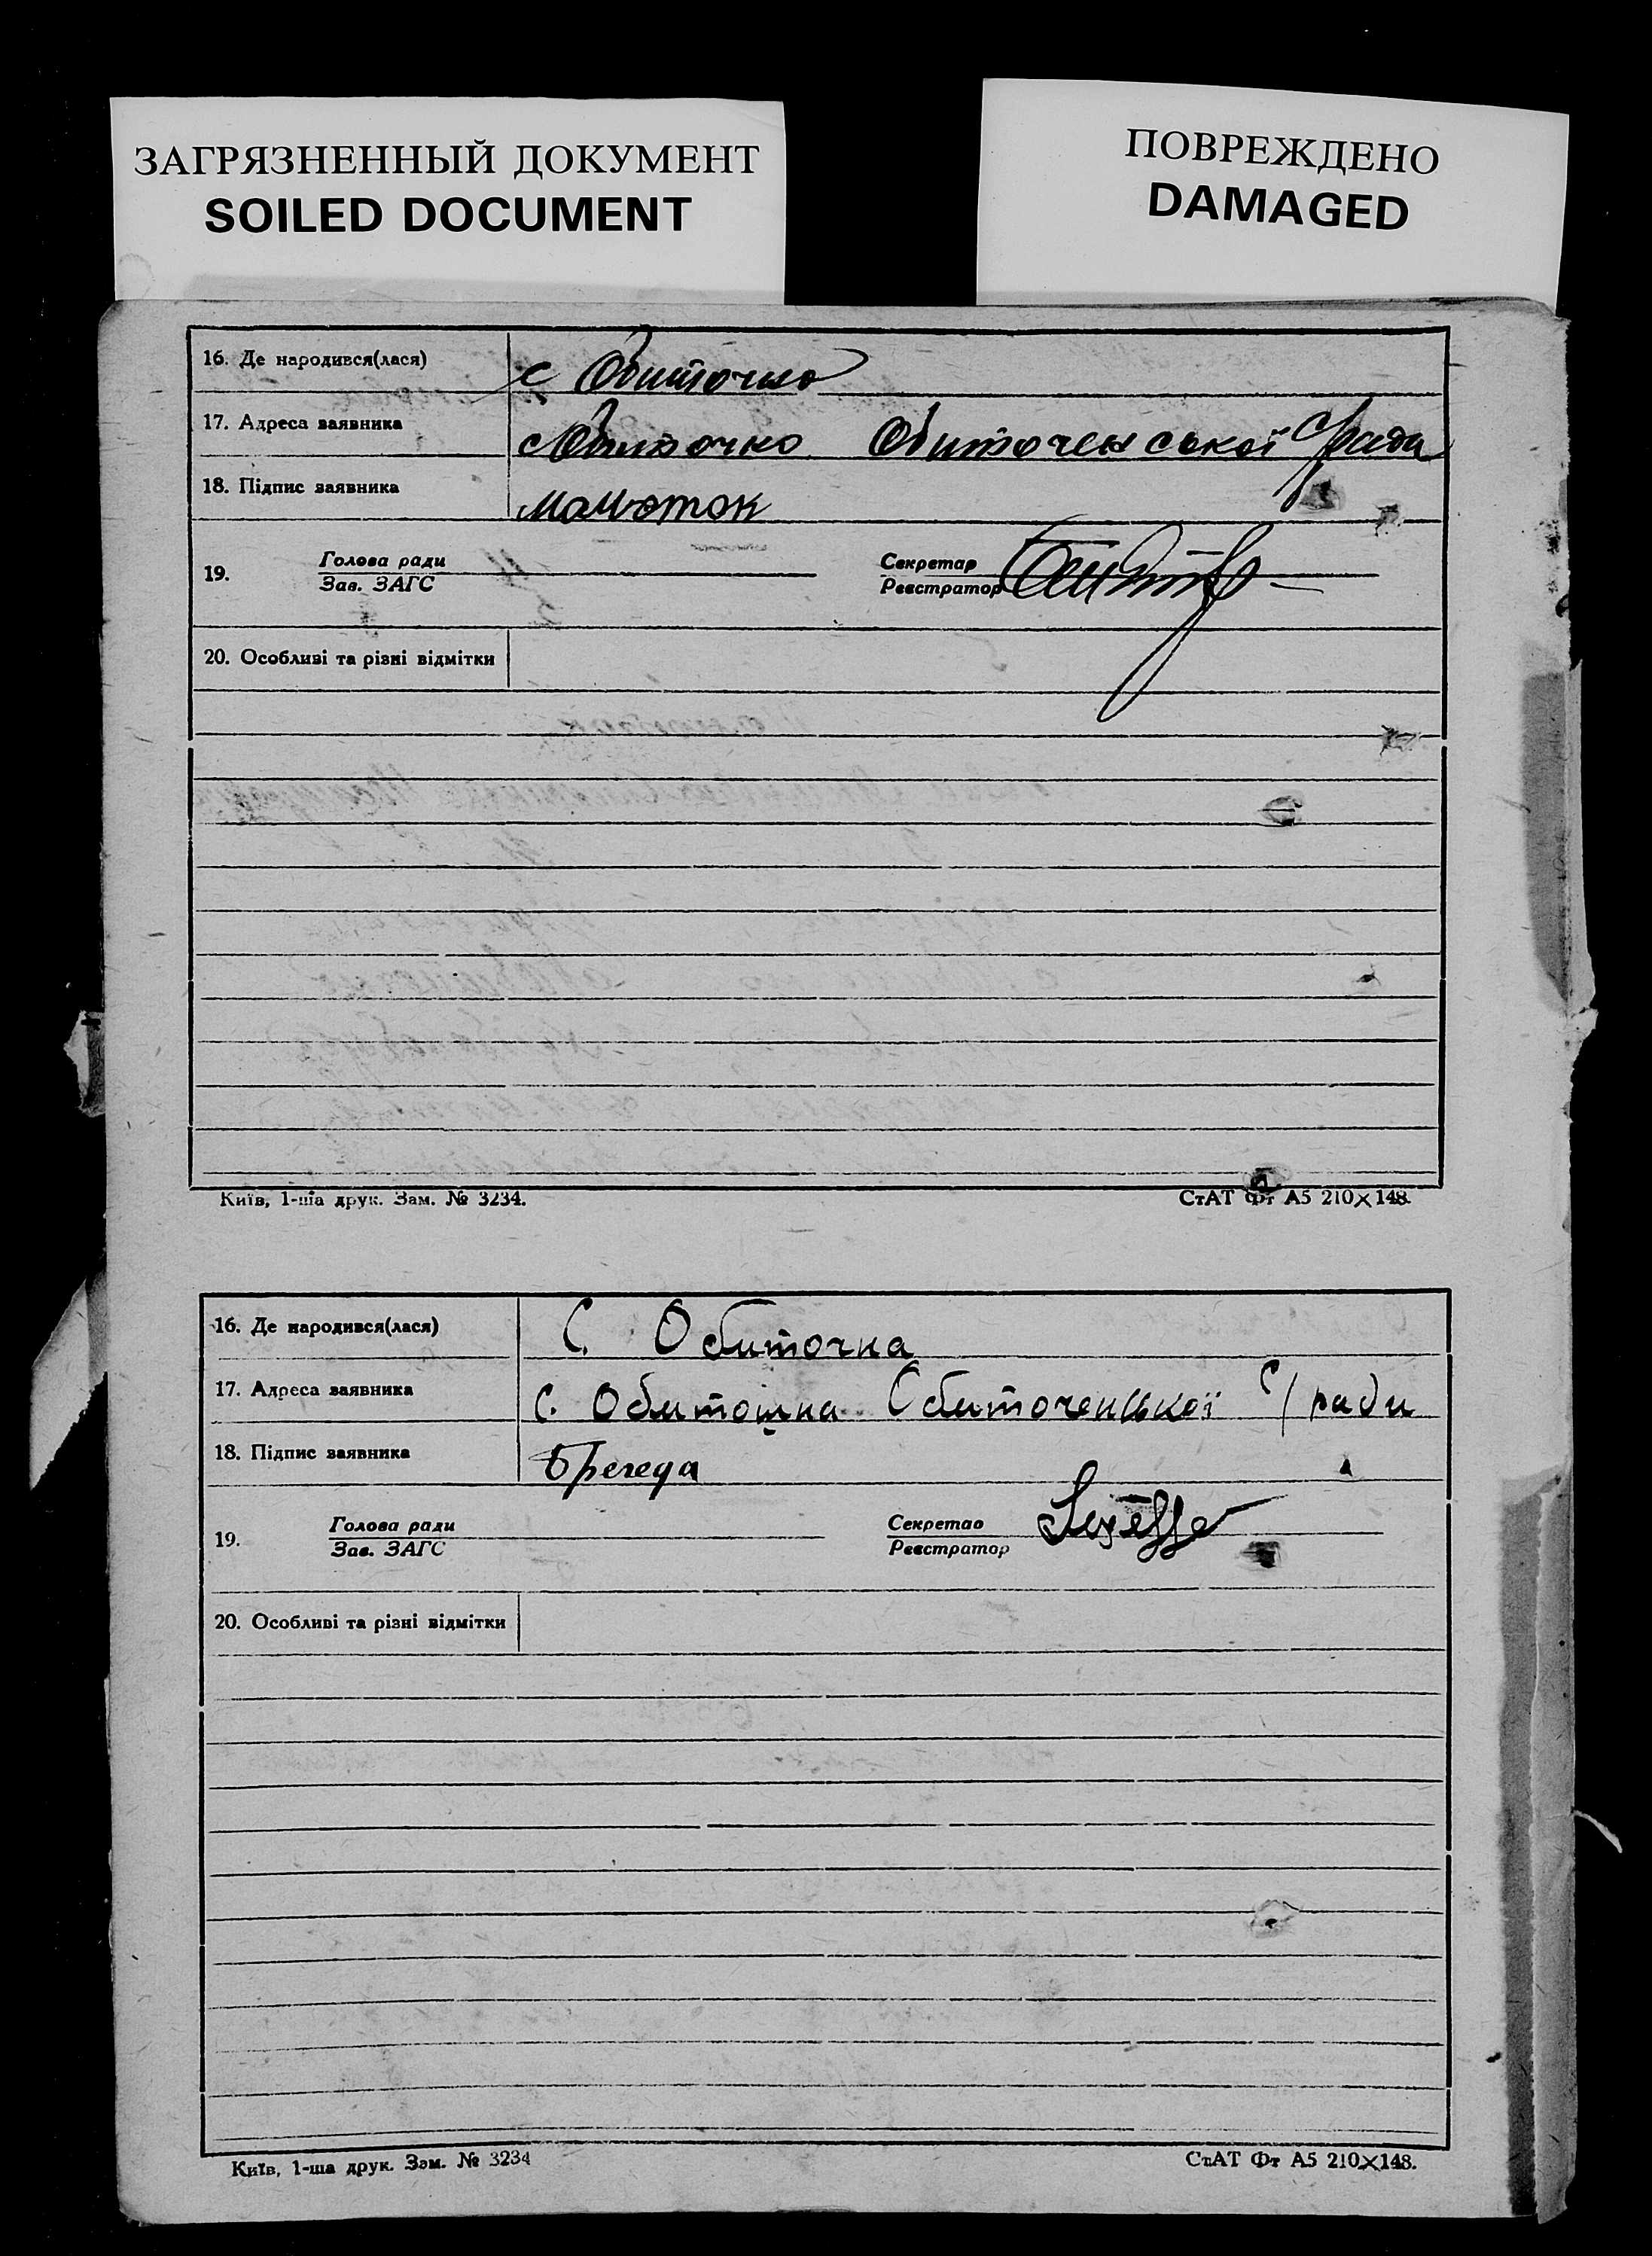 ЗАГРЯЗНЕННЫЙ ДОКУМЕНТ
SOILED DOCUMENT
ПОВРЕЖДЕНО
DAMAGED
16. Де народився(лася) с Обиточна
17. Адреса заявника с Обиточна Обиточенської с/ради
18. Підпис заявника
19. Голова ради Секретар
Зав. ЗАГС Реєстратор
20. Особливі та різні відмітки
Київ, 1-ша друк. Зам. № 3234. СтАТ Фт А5 210×148.
16. Де народився(лася) С. Обиточна
17. Адреса заявника с. Обиточна Обиточенської с/ради
18. Підпис заявника
19. Голова ради Секретар
Зав. ЗАГС Реєстратор
20. Особливі та різні відмітки
Київ, 1-ша друк. Зам. № 3234 СтАТ Фт А5 210×148.